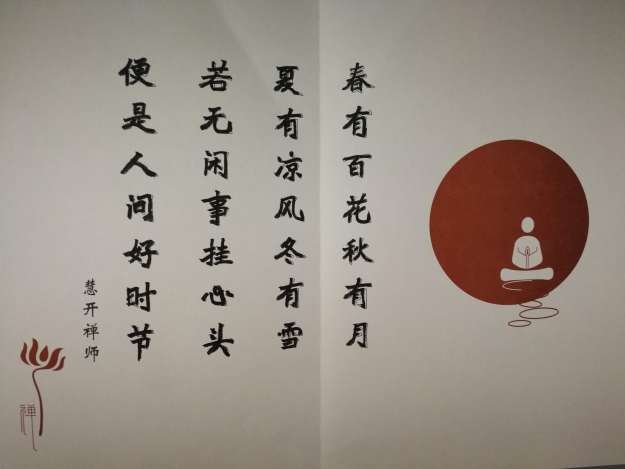 春有百花秋有月
夏有凉风冬有雪
若无闲事挂心头
便是人间好时节
慧开禅师
禅